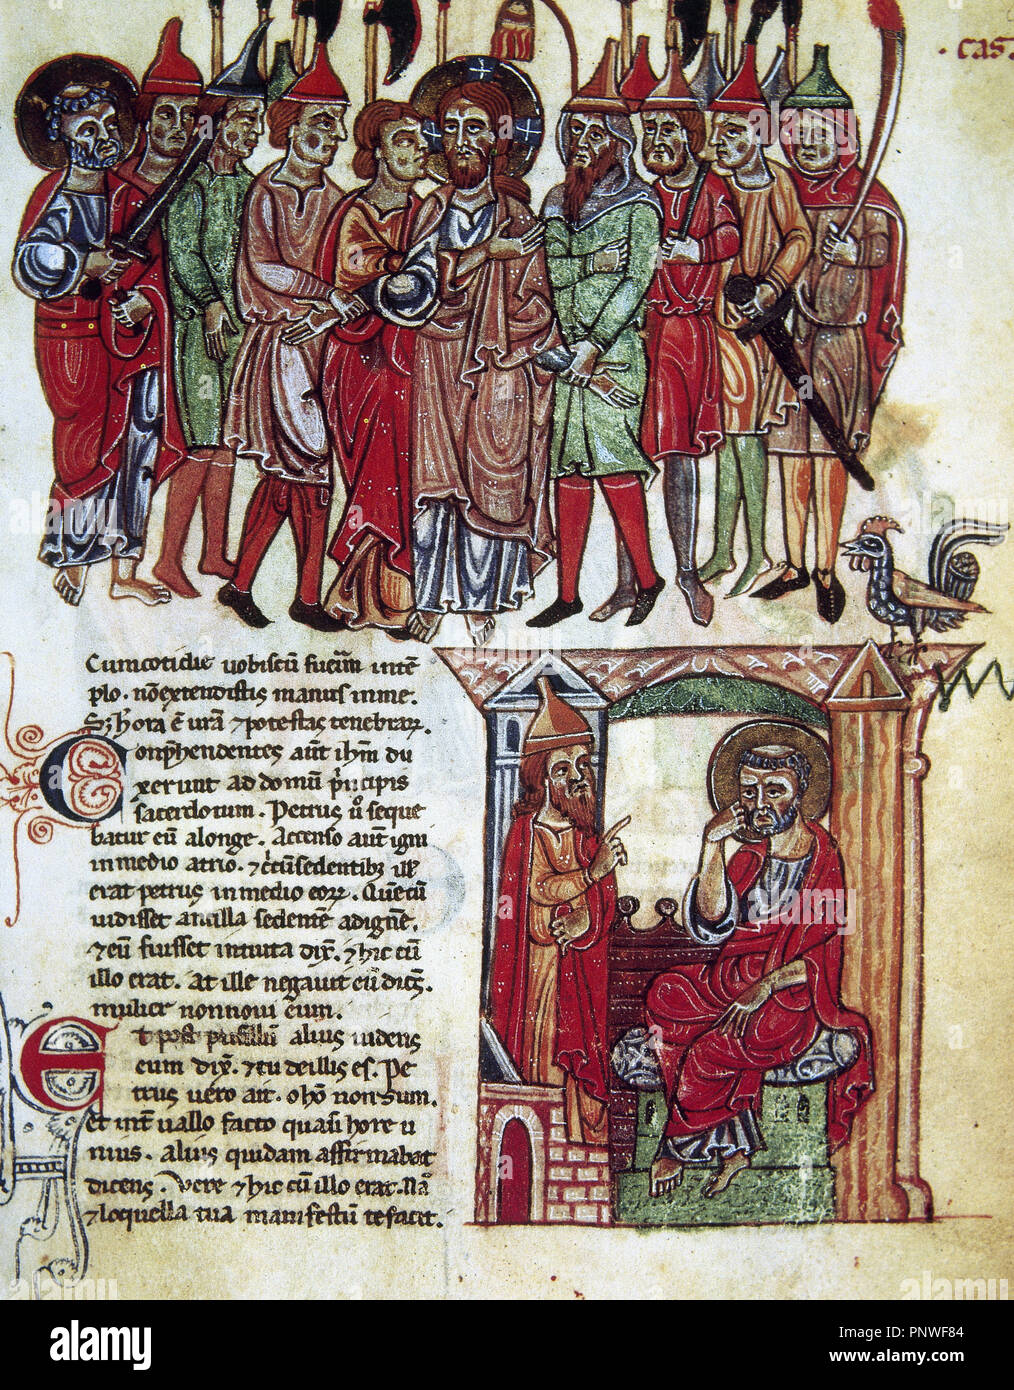 · cas
Cumcotidie vobiscū fuerim intē
plo. nōextendistis manus inme.
S; hͦ hora ē urā ⁊potestas tenebraꝝ.
Conp̄hendentes aūt ih̄m du
xerunt ad domū p̄ncipis
sacerdotum. Petrus ū seque
batur eū alonge. Accenso aūt igni
in medio atrio. ⁊ circūsedentibꝫ ill
erat petrus in medio eoꝝ. Quē cū
vidisset ancilla sedentē adignē.
⁊ eū fuisset intuita dix̄. ⁊ hic cū
illo erat. At ille negavit eū dicēs.
mulier nonnovi eum.
Et post pusillū alius videns
eum dix̄. ⁊ tu deillis es. Pe
trus vero ait. o hō nonsum.
Et int̄vallo facto quasi hore u
nius. alius quidam affirmabat
dicens. vere ⁊ hic cū illo erat. Nā
⁊ loquella tua manifestū te facit.
alamy
alamy
Image ID: PNWF84
www.alamy.com